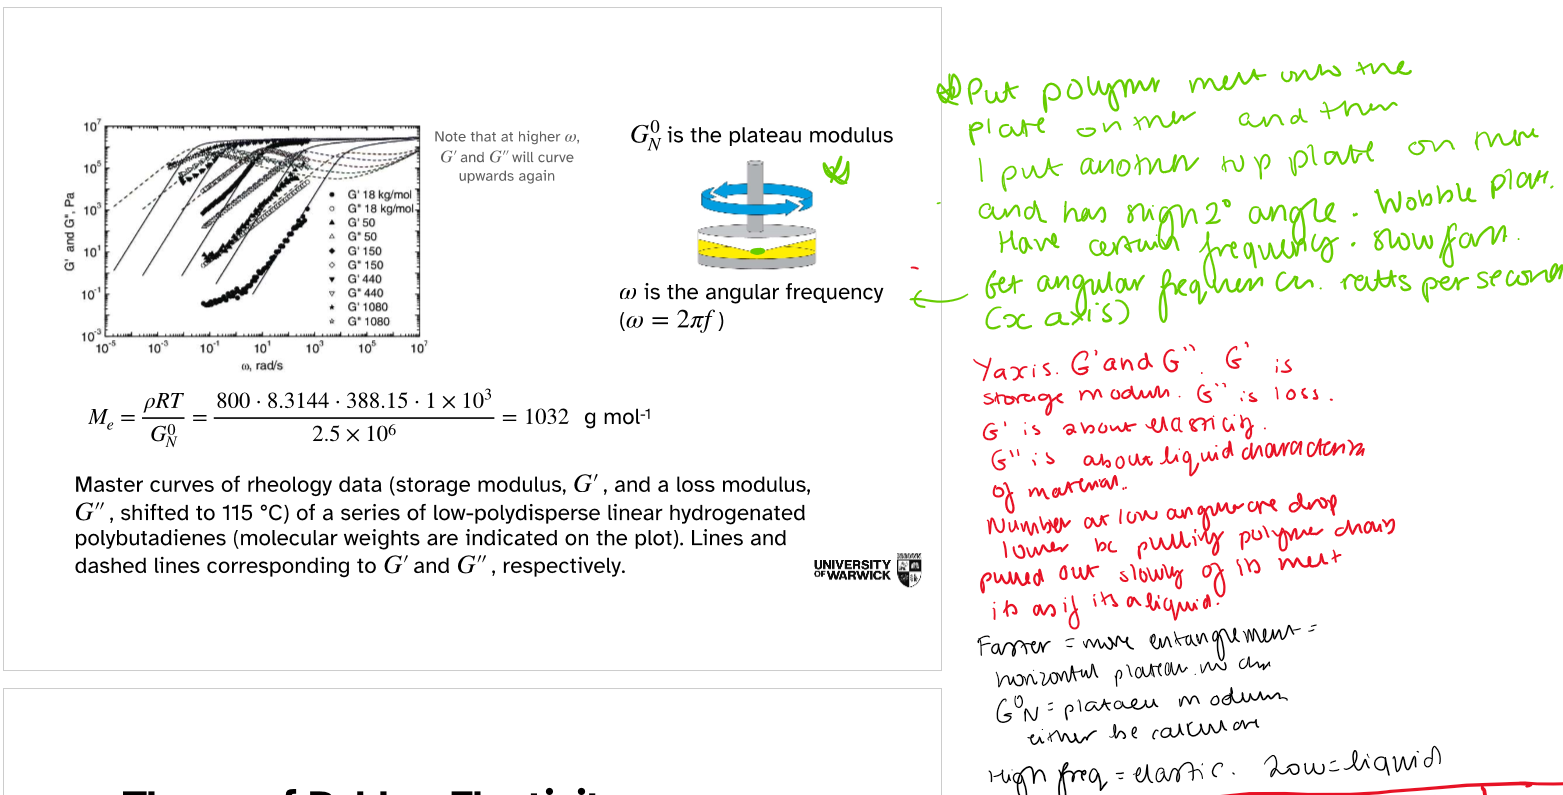 10⁷
10⁵
10³
10¹
10⁻¹
10⁻³
G' and G", Pa
10⁻⁵ 10⁻³ 10⁻¹ 10¹ 10³ 10⁵ 10⁷
ω, rad/s
G' 18 kg/mol
G" 18 kg/mol
G' 50
G" 50
G' 150
G" 150
G' 440
G" 440
G' 1080
G" 1080
Note that at higher ω,
G′ and G″ will curve
upwards again
G_N^0 is the plateau modulus
ω is the angular frequency
(ω = 2πf)
M_e = ρRT / G_N^0 = 800 · 8.3144 · 388.15 · 1 × 10³ / 2.5 × 10⁶ = 1032 g mol⁻¹
Master curves of rheology data (storage modulus, G′, and a loss modulus,
G″, shifted to 115 °C) of a series of low-polydisperse linear hydrogenated
polybutadienes (molecular weights are indicated on the plot). Lines and
dashed lines corresponding to G′ and G″, respectively.
UNIVERSITY
OF WARWICK
Put polymer melt onto the
plate and then
I put another top plate on
and has 2° angle. Wobble plate.
Have certain frequency. slow fast.
Get angular per second
(x axis)
Y axis. G' and G". G' is
storage modulus. G" is loss.
G' is about elasticity.
G" is about liquid
of material.
Number at low drop
lower bc pulling polymer chains
pulled out slowly of its melt
its as if its a liquid.
Faster = more entanglement =
horizontal plateau.
G⁰N = plateau modulus
either be
High freq = elastic. Low = liquid